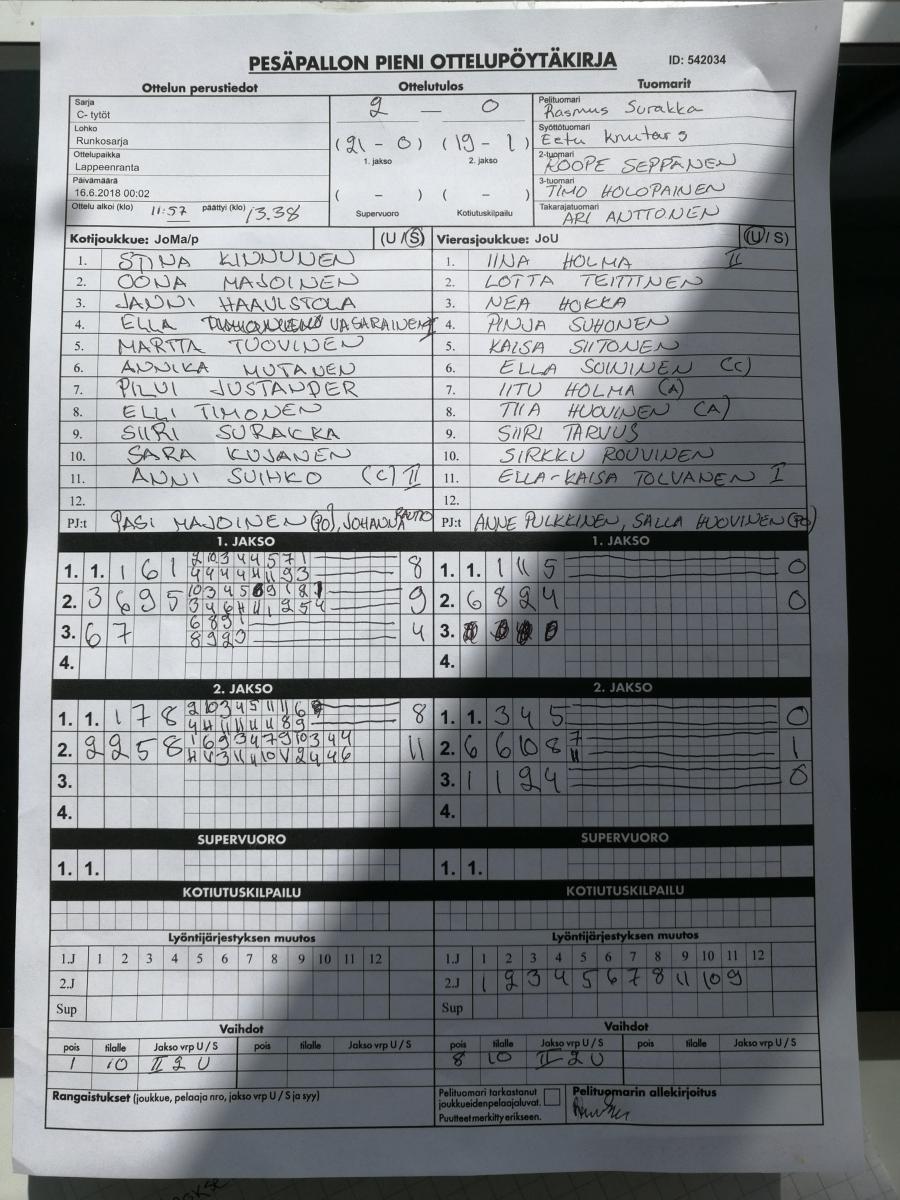 PESÄPALLON PIENI OTTELUPÖYTÄKIRJA ID: 542034
Ottelun perustiedot Ottelutulos Tuomarit
Sarja
C- tytöt
Lohko
Runkosarja
Ottelupaikka
Lappeenranta
Päivämäärä
16.6.2018 00:02
Ottelu alkoi (klo) 11:57 päättyi (klo) 13.38
2 — 0
(21 - 0) (19 - 1)
1. jakso 2. jakso
( - ) ( - )
Supervuoro Kotiutuskilpailu
Pelituomari
Rasmus Surakka
Syöttötuomari
Eetu Knuters
2-tuomari
ROOPE SEPPÄNEN
3-tuomari
TIMO HOLOPAINEN
Takarajatuomari
ARI ANTTONEN
Kotijoukkue: JoMa/p (U / S)
1. STINA KINNUNEN
2. OONA MAJOINEN
3. JANNI HAAVISTOLA
4. ELLA VASARAINEN I
5. MARTTA TUOVINEN
6. ANNIKA MUTANEN
7. PILVI JUSTANDER
8. ELLI TIMONEN
9. SIIRI SURAKKA
10. SARA KUJANEN
11. ANNI SUIHKO (C) II
12.
PJ:t PASI MAJOINEN (PO), JOHANNA RAUTIO
Vierasjoukkue: JoU (U / S)
1. IINA HOLMA II
2. LOTTA TEITTINEN
3. NEA HOKKA
4. PINJA SUHONEN
5. KAISA SIITONEN
6. ELLA SOININEN (C)
7. IITU HOLMA (A)
8. TIIA HUOVINEN (A)
9. SIIRI TARVUS
10. SIRKKU ROUVINEN
11. ELLA-KAISA TOLVANEN I
12.
PJ:t ANNE PULKKINEN, SALLA HUOVINEN (PO)
1. JAKSO
1. 1. 1 6 1 2 10 3 4 4 5 7 1 8
4 4 4 4 4 11 9 3
2. 3 6 9 5 10 3 4 5 6 9 1 8 9
3 4 6 4 11 1 2 5 4
3. 6 7 6 8 9 1 4
8 9 2
4.
1. JAKSO
1. 1. 1 11 5 0
2. 6 8 2 4 0
3.
4.
2. JAKSO
1. 1. 1 7 8 2 10 3 4 5 11 11 6 8
4 4 11 11 11 11 8 9
2. 2 2 5 8 1 6 9 3 4 7 9 10 3 4 4 11
3.
4.
2. JAKSO
1. 1. 3 4 5 0
2. 6 6 10 8 7 1
11
3. 1 1 2 4 0
4.
SUPERVUORO
1. 1.
SUPERVUORO
1. 1.
KOTIUTUSKILPAILU
KOTIUTUSKILPAILU
Lyöntijärjestyksen muutos
1.J 1 2 3 4 5 6 7 8 9 10 11 12
2.J
Sup
Lyöntijärjestyksen muutos
1.J 1 2 3 4 5 6 7 8 9 10 11 12
2.J 1 2 3 4 5 6 7 8 11 10 9
Sup
Vaihdot
pois tilalle Jakso vrp U / S pois tilalle Jakso vrp U / S
1 10 II 2 U
Vaihdot
pois tilalle Jakso vrp U / S pois tilalle Jakso vrp U / S
8 10 II 2 U
Rangaistukset (joukkue, pelaaja nro, jakso vrp U / S ja syy)
Pelituomari tarkastanut
joukkueidenpelaajaluvat.
Puutteet merkitty erikseen.
Pelituomarin allekirjoitus